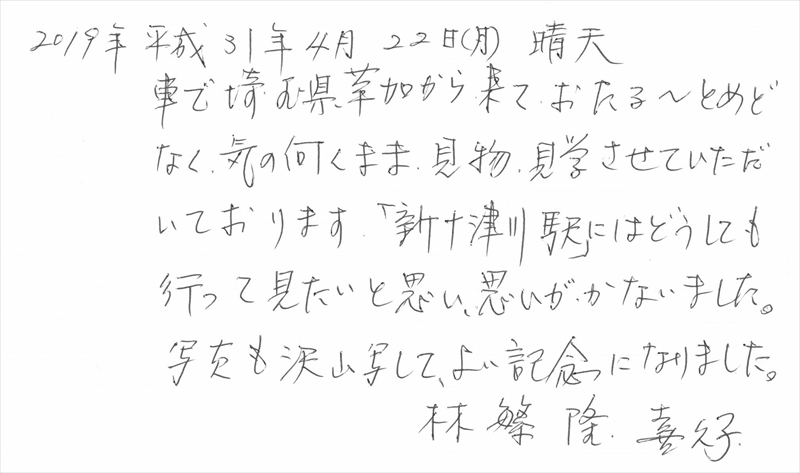 2019年 平成31年4月22日(月) 晴天
車で埼玉県草加から来て、おたる〜とめど
なく、気の何くまま、見物、見学させていただ
いております。「新十津川駅」にはどうしても
行って見たいと思い、思いがかないました。
写真も沢山写して、よい記念になりました。
林 繁隆 喜久子